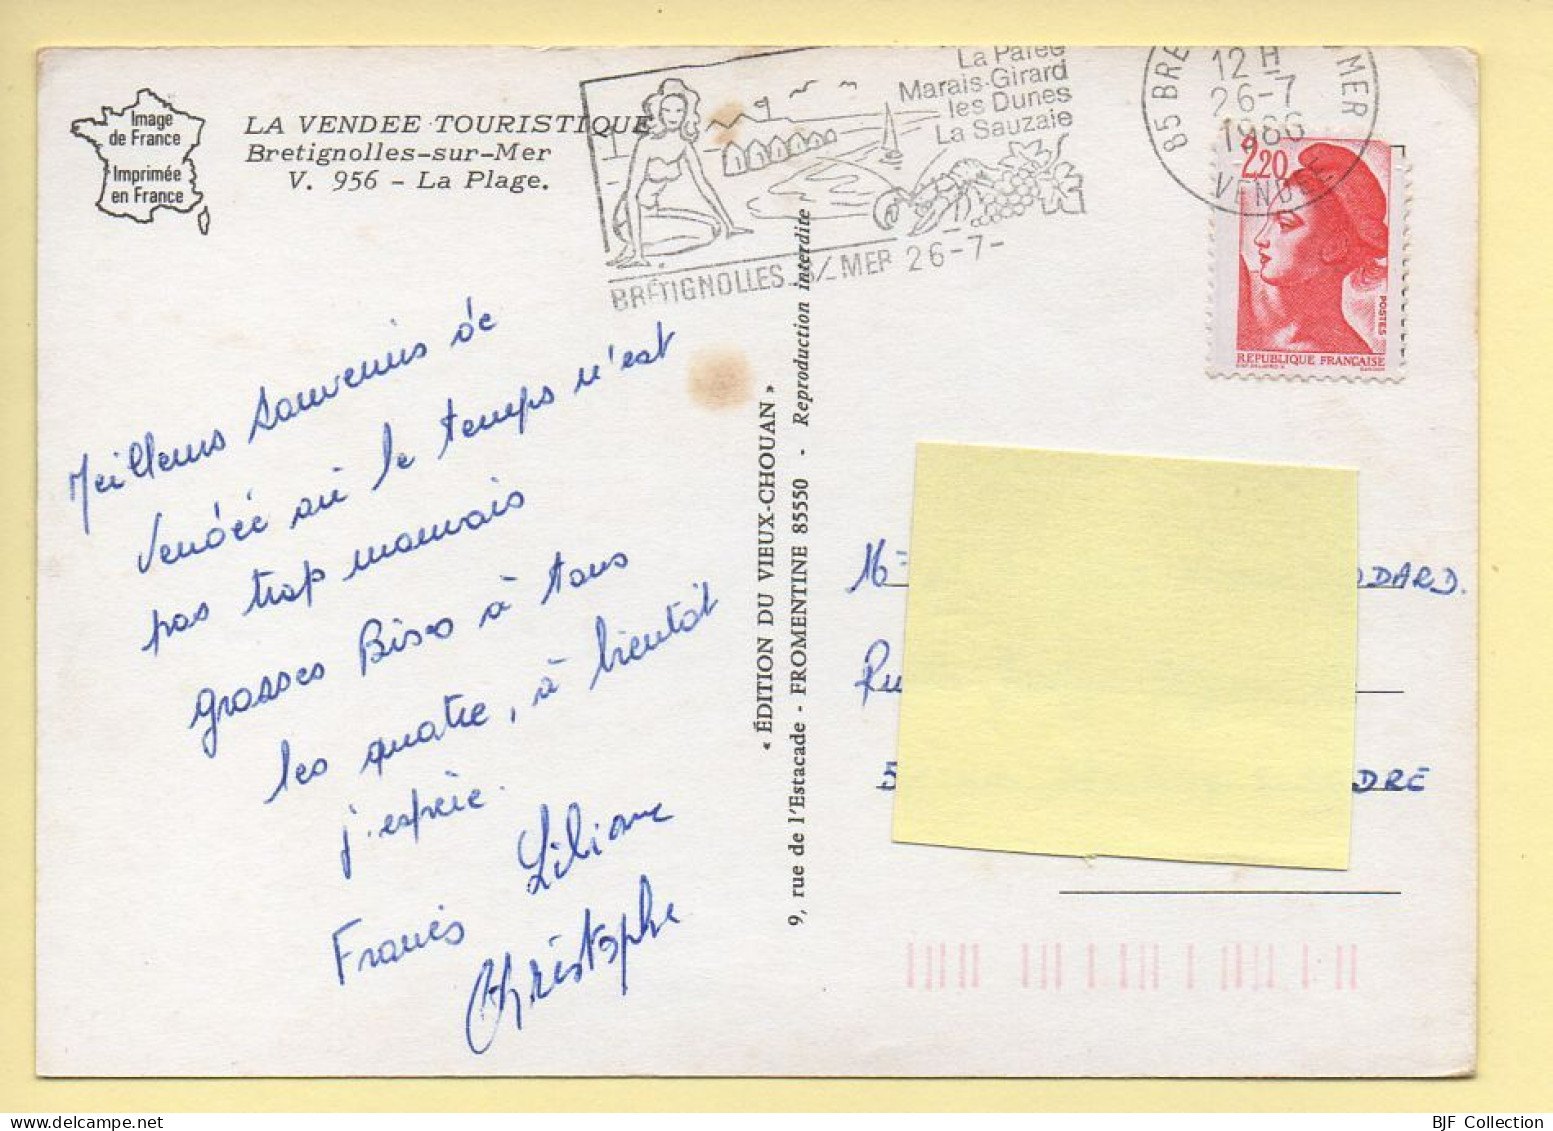 Image
de France
Imprimée
en France
LA VENDEE TOURISTIQUE
Bretignolles-sur-Mer
V. 956 - La Plage.
La Parée
Marais-Girard
les Dunes
La Sauzaie
BRÉTIGNOLLES S/ MER 26-7-
85 BRE MER
12 H
26-7
1986
VENDEE
2,20
POSTES
REPUBLIQUE FRANÇAISE
Meilleurs souvenirs de
Vendée où le temps n'est
pas trop mauvais
grosses Bises à tous
les quatre, à bientôt
j'espère.
Liliane
Francis
Christophe
« ÉDITION DU VIEUX-CHOUAN »
9, rue de l'Estacade - FROMENTINE 85550 - Reproduction interdite
ODARD.
Ru
5
DRE
BJF Collection